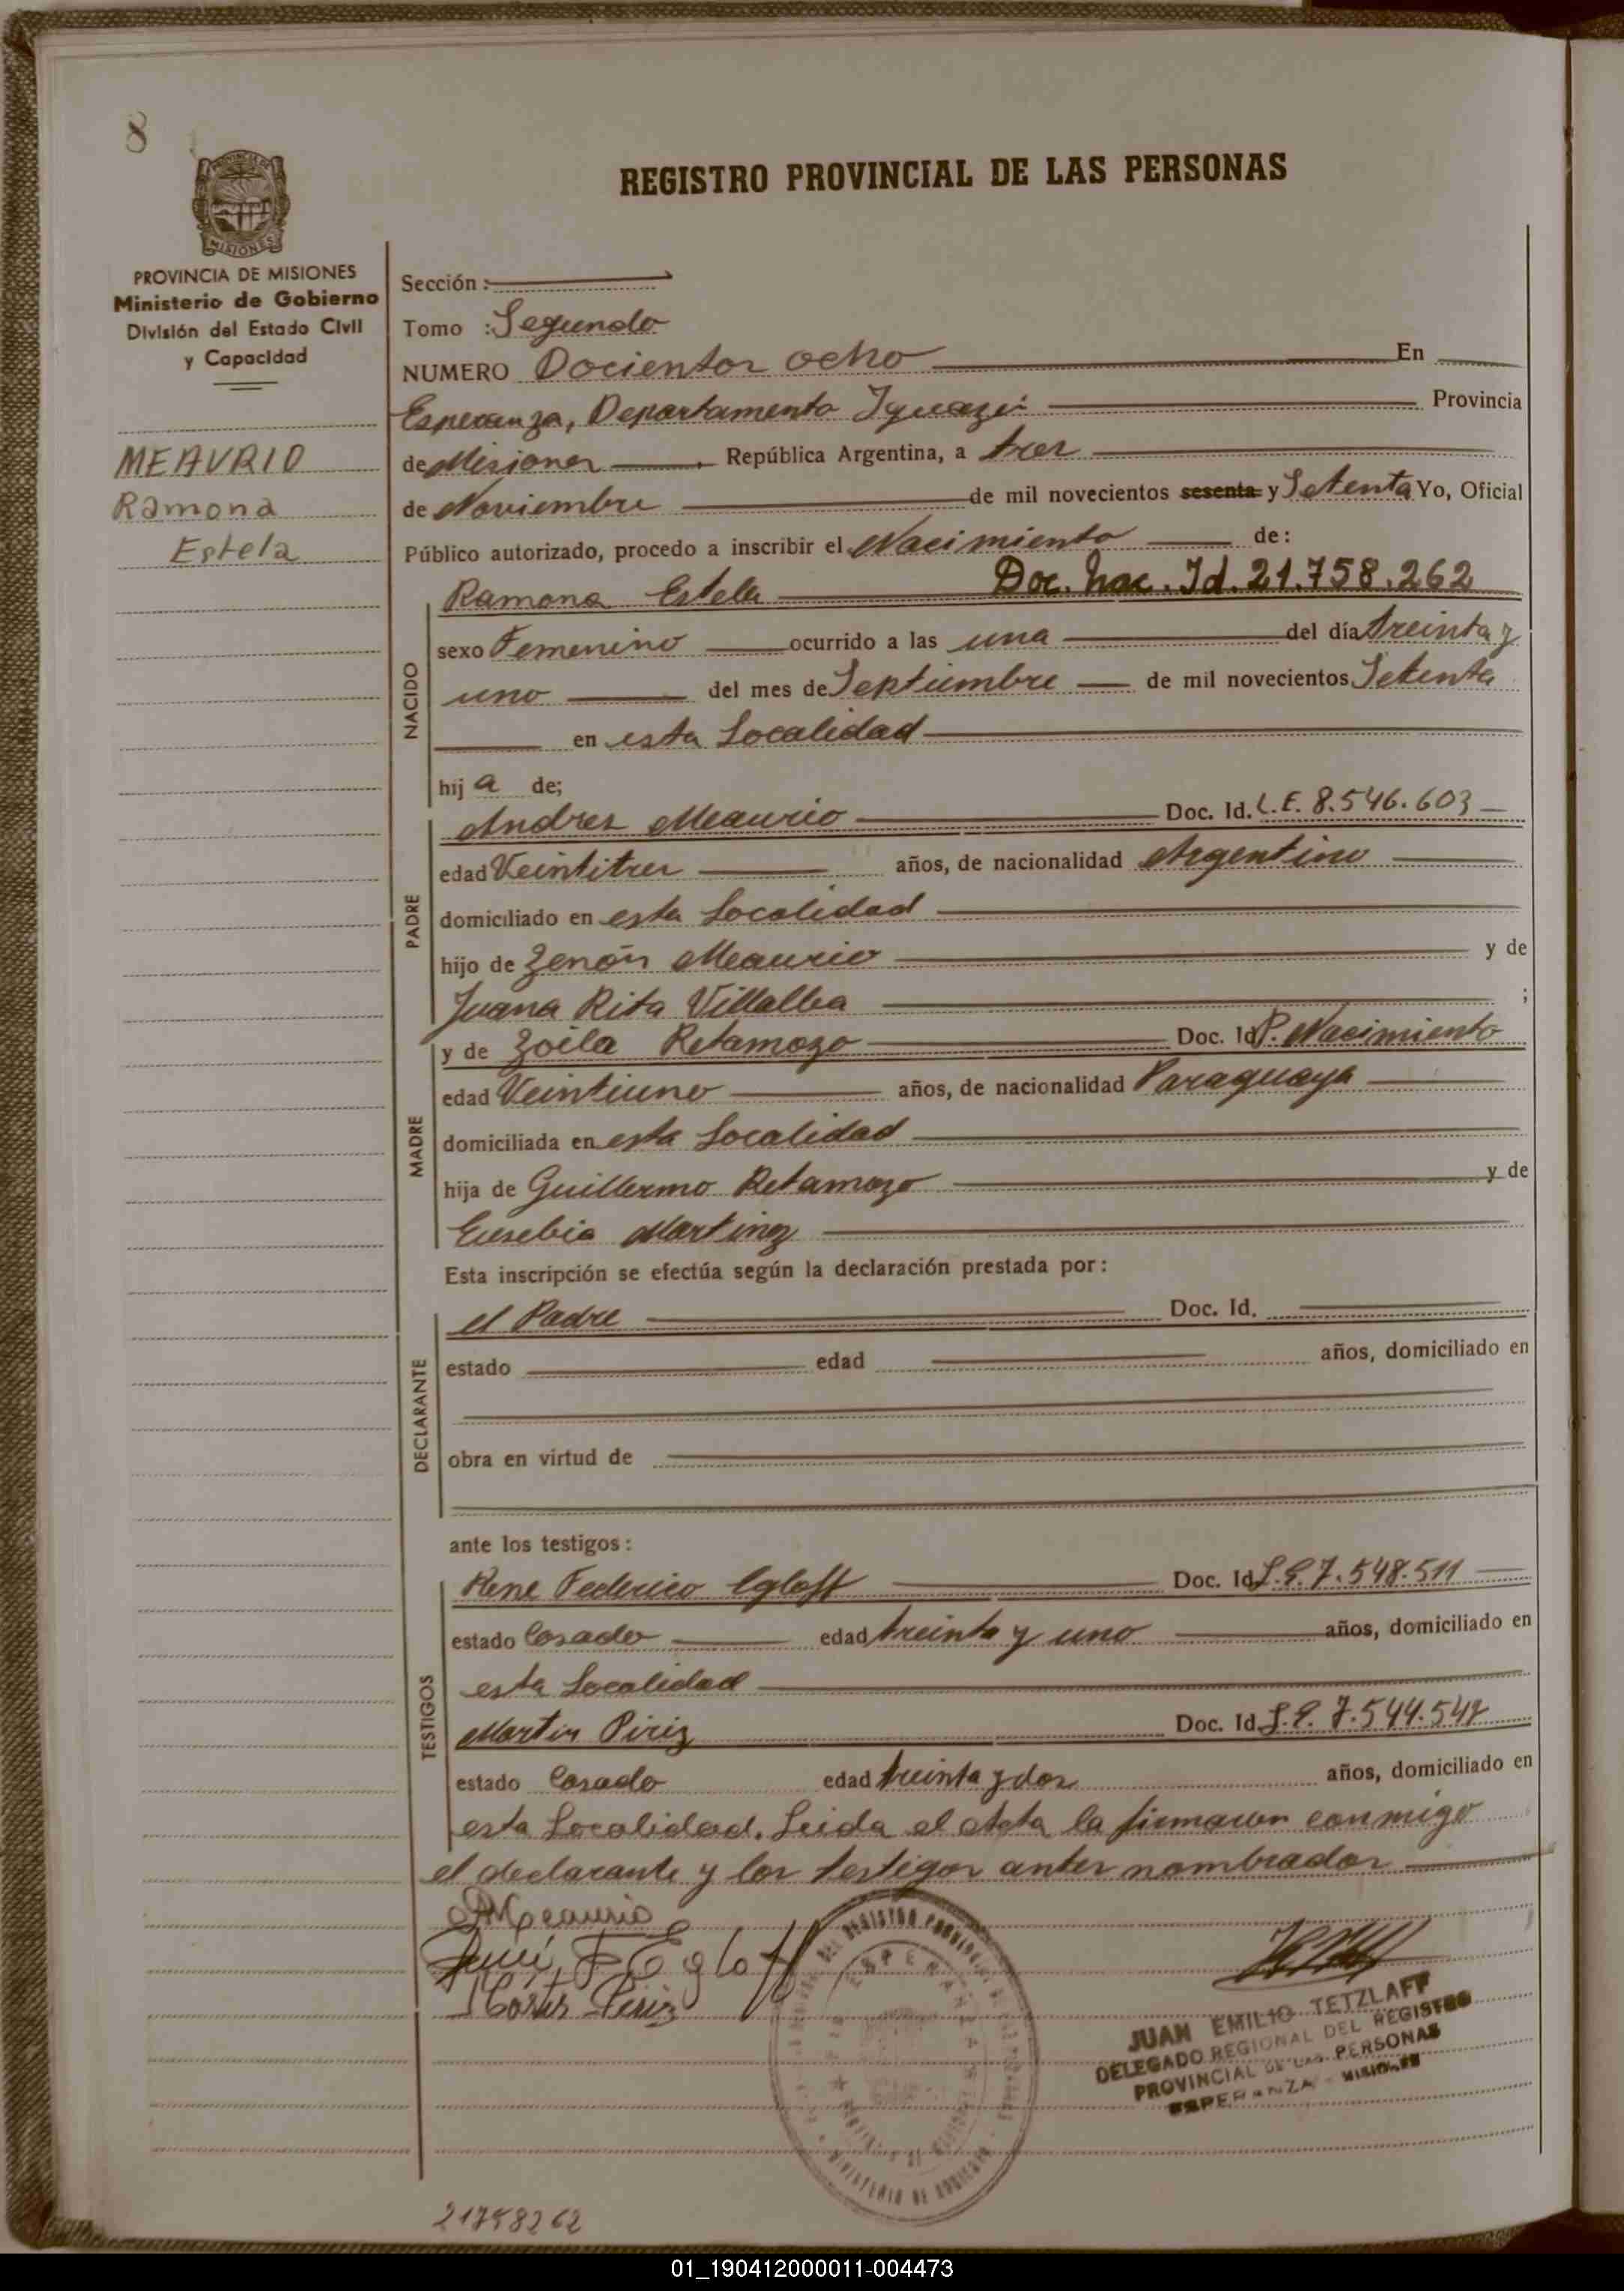 8
REGISTRO PROVINCIAL DE LAS PERSONAS
MISIONES
PROVINCIA DE MISIONES
Ministerio de Gobierno
División del Estado Civil
y Capacidad
MEAURIO
Ramona
Estela
Sección :
Tomo : Segundo
NUMERO Docientos ocho En
Esperanza, Departamento Iguazú Provincia
de Misiones, República Argentina, a tres
de Noviembre de mil novecientos sesenta y Setenta Yo, Oficial
Público autorizado, procedo a inscribir el Nacimiento de:
Ramona Estela Doc. Nac. Id. 21.758.262
NACIDO
sexo Femenino ocurrido a las una del día treinta y
uno del mes de Septiembre de mil novecientos Setenta
en esta Localidad
hij a de;
PADRE
Andres Meaurio Doc. Id. L.E. 8.546.603
edad Veintitres años, de nacionalidad Argentino
domiciliado en esta Localidad
hijo de Zenón Meaurio y de
Juana Rita Villalba ;
MADRE
y de Zoila Retamozo Doc. Id P. Nacimiento
edad Veintiuno años, de nacionalidad Paraguaya
domiciliada en esta Localidad
hija de Guillermo Retamozo y de
Eusebia Martinez
Esta inscripción se efectúa según la declaración prestada por:
DECLARANTE
el Padre Doc. Id.
estado edad años, domiciliado en
obra en virtud de
ante los testigos:
TESTIGOS
Rene Federico Egloff Doc. Id L.E. 7.548.511
estado Casado edad treinta y uno años, domiciliado en
esta Localidad
Martin Piriz Doc. Id L.E. 7.544.542
estado Casado edad treinta y dos años, domiciliado en
esta Localidad. Leida el Acta la firmaron conmigo
el declarante y los testigos antes nombrados
AMeaurio
René F Egloff
Martin Piriz
ESPERANZA
MINISTERIO DE GOBIERNO
JUAN EMILIO TETZLAFF
DELEGADO REGIONAL DEL REGISTRO
PROVINCIAL DE LAS PERSONAS
ESPERANZA - MISIONES
21758262
01_190412000011-004473